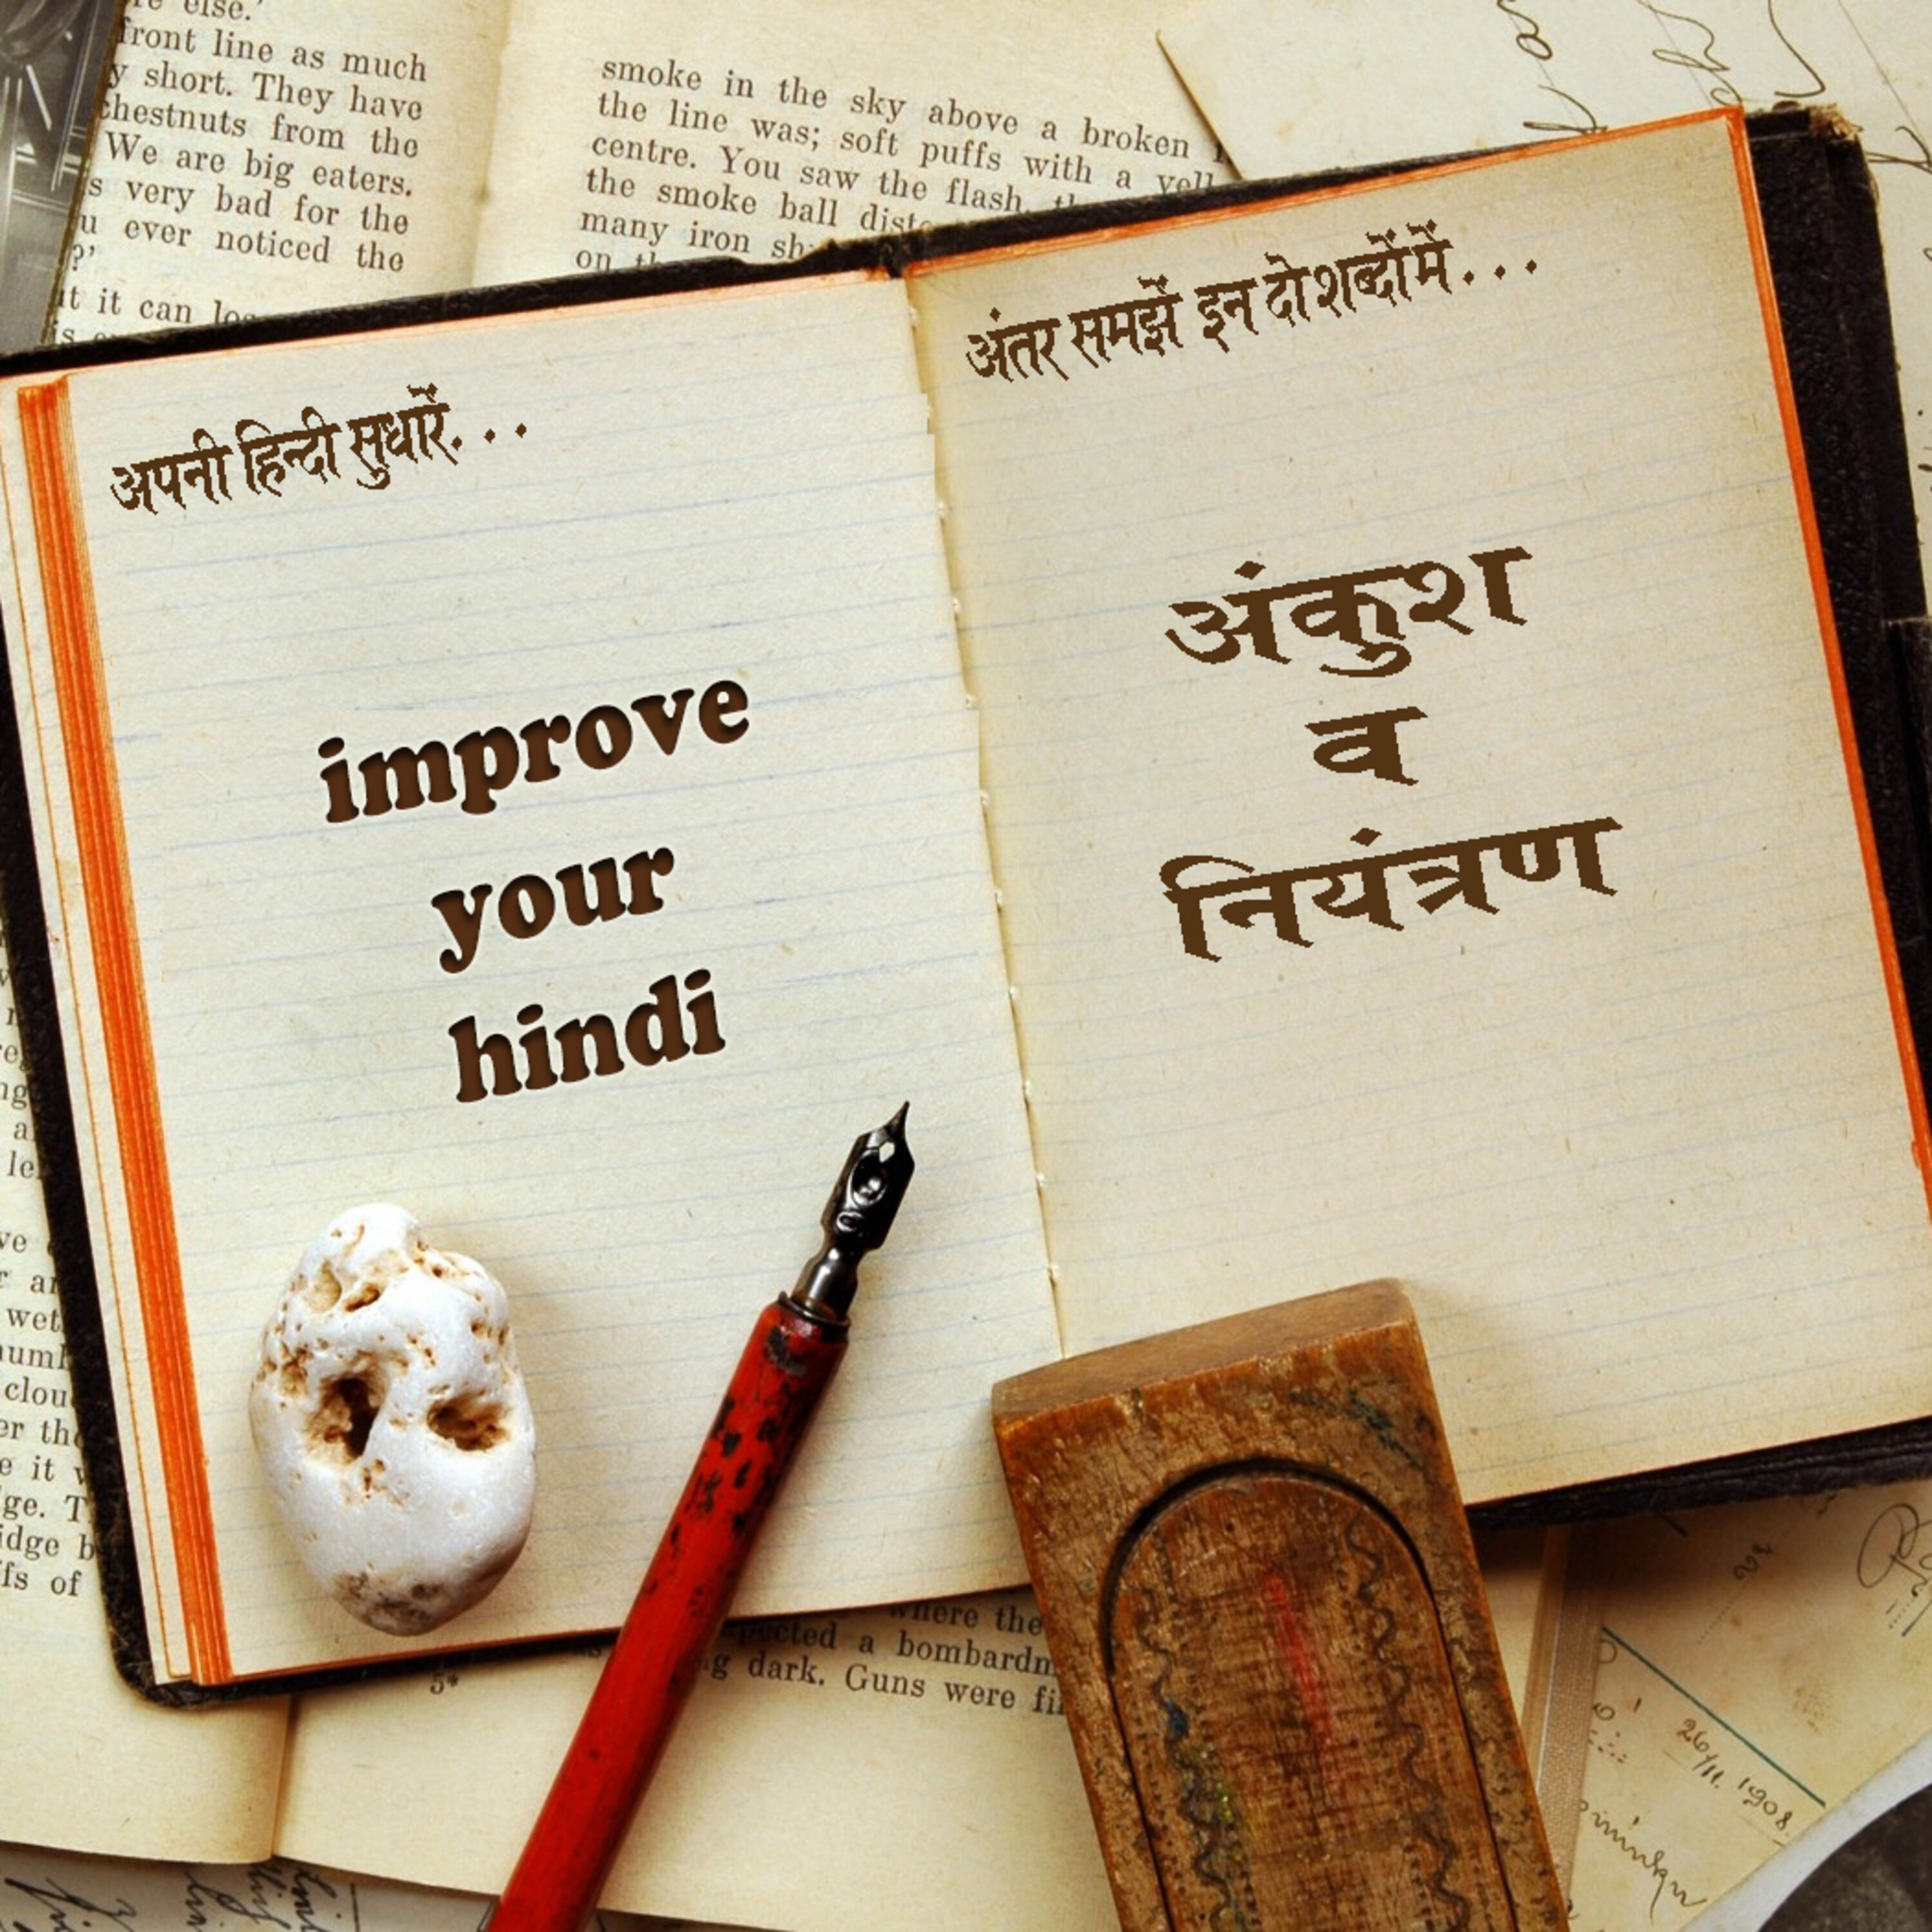 re else.'
front line as much
y short. They have
chestnuts from the
We are big eaters.
s very bad for the
u ever noticed the
?'
it it can
smoke in the sky above a broken
the line was; soft puffs with a
centre. You saw the flash,
the smoke ball
many iron
on
अपनी हिन्दी सुधारें. . .
improve
your
hindi
अंतर समझें इन दो शब्दों में . . .
अंकुश
व
नियंत्रण
wet
clou
it
ge. T
idge b
fs of
where the
a bombardm
g dark. Guns were
5*
26/11. 1908.